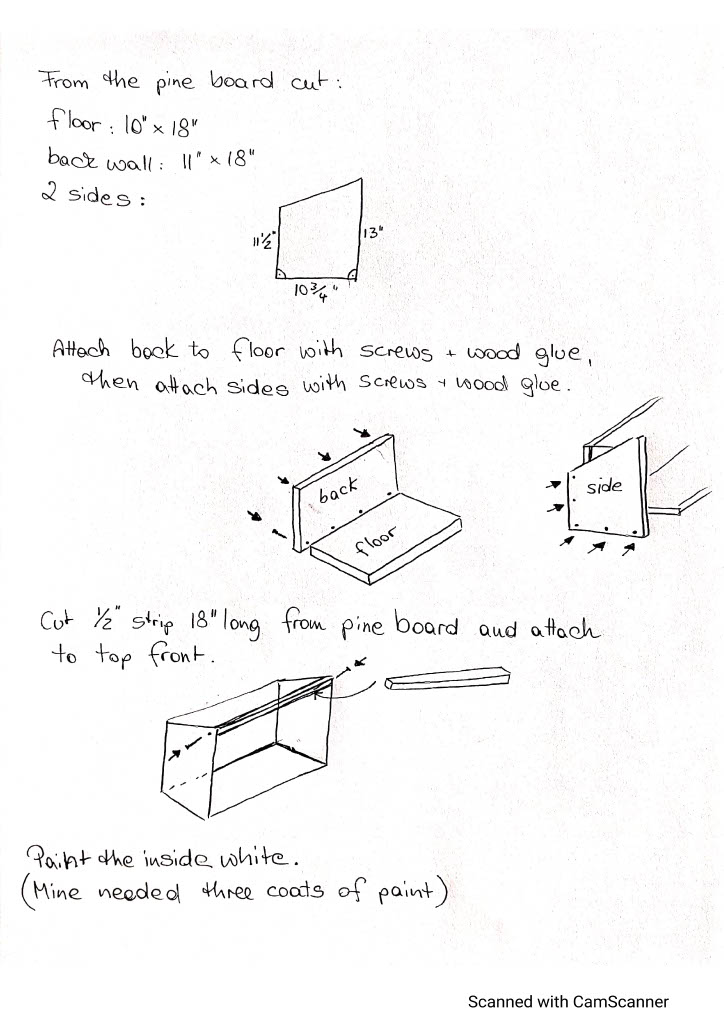 From the pine board cut:
floor: 10" x 18"
back wall: 11" x 18"
2 sides:
11 1/2"
13"
10 3/4"
Attach back to floor with screws + wood glue,
then attach sides with screws + wood glue.
back
floor
side
Cut 1/2" strip 18" long from pine board and attach
to top front.
Paint the inside white.
(Mine needed three coats of paint)
Scanned with CamScanner